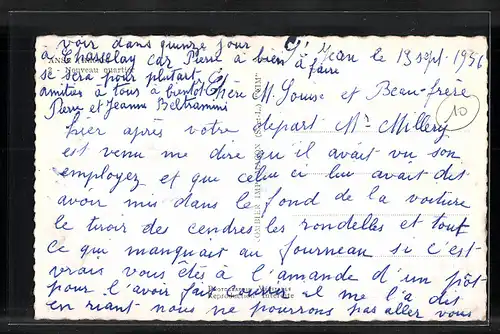 St Jean le 13 sept. 1956
Chère M. Louise et Beau-frère
hier après votre départ Mr Millery
est venu me dire qu'il avait vu son
employez et que celui ci lui avait dit
avoir mis dans le fond de la voiture
le tiroir des cendres les rondelles et tout
ce qui manquait au fourneau si c'est
vrais vous êtes à l'amande d'un pot
pour l'avoir fait il me l'a dit
en riant nous ne pourrons pas aller vous
voir dans quinze jour
à Chasselay car Pierre à bien à faire
se sera pour plutart
amitiés à tous à bientôt
Pierre et Jeanne Beltramini
10
Nouveau quartier
COMBIER IMPRIMEUR MACON
Reproduction interdite